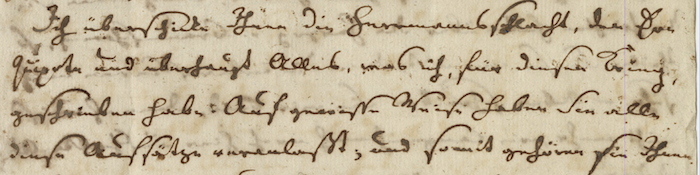 Ich überschicke Ihnen die Herrmannsschlacht, den Don
Quixote und überhaupt Alles, was ich, für diesen
geschrieben habe. Auf gewisse Weise haben Sie alle
diese Aufsätze veranlasst; und somit gehören sie Ihnen